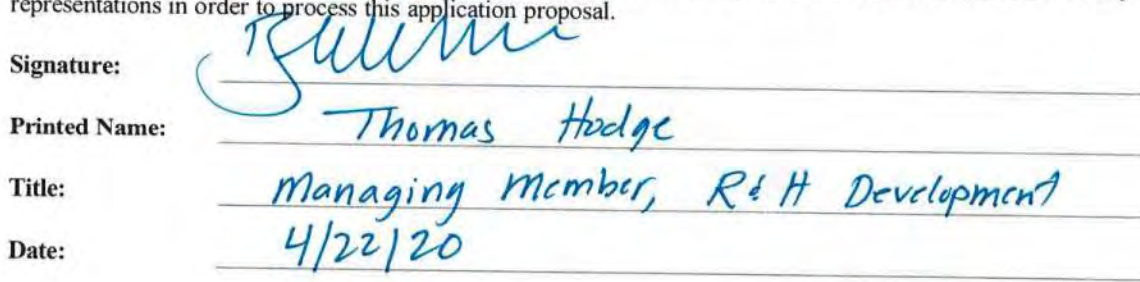 representations in order to process this application proposal.
Signature:
Printed Name: Thomas Hodge
Title: Managing Member, R & H Development
Date: 4/22/20